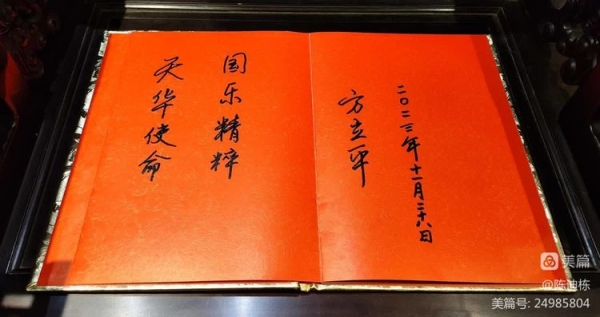 天华使命
国乐精粹
方立平
二〇二三年十一月二十八日
美篇
@陈迪栋
美篇号: 24985804